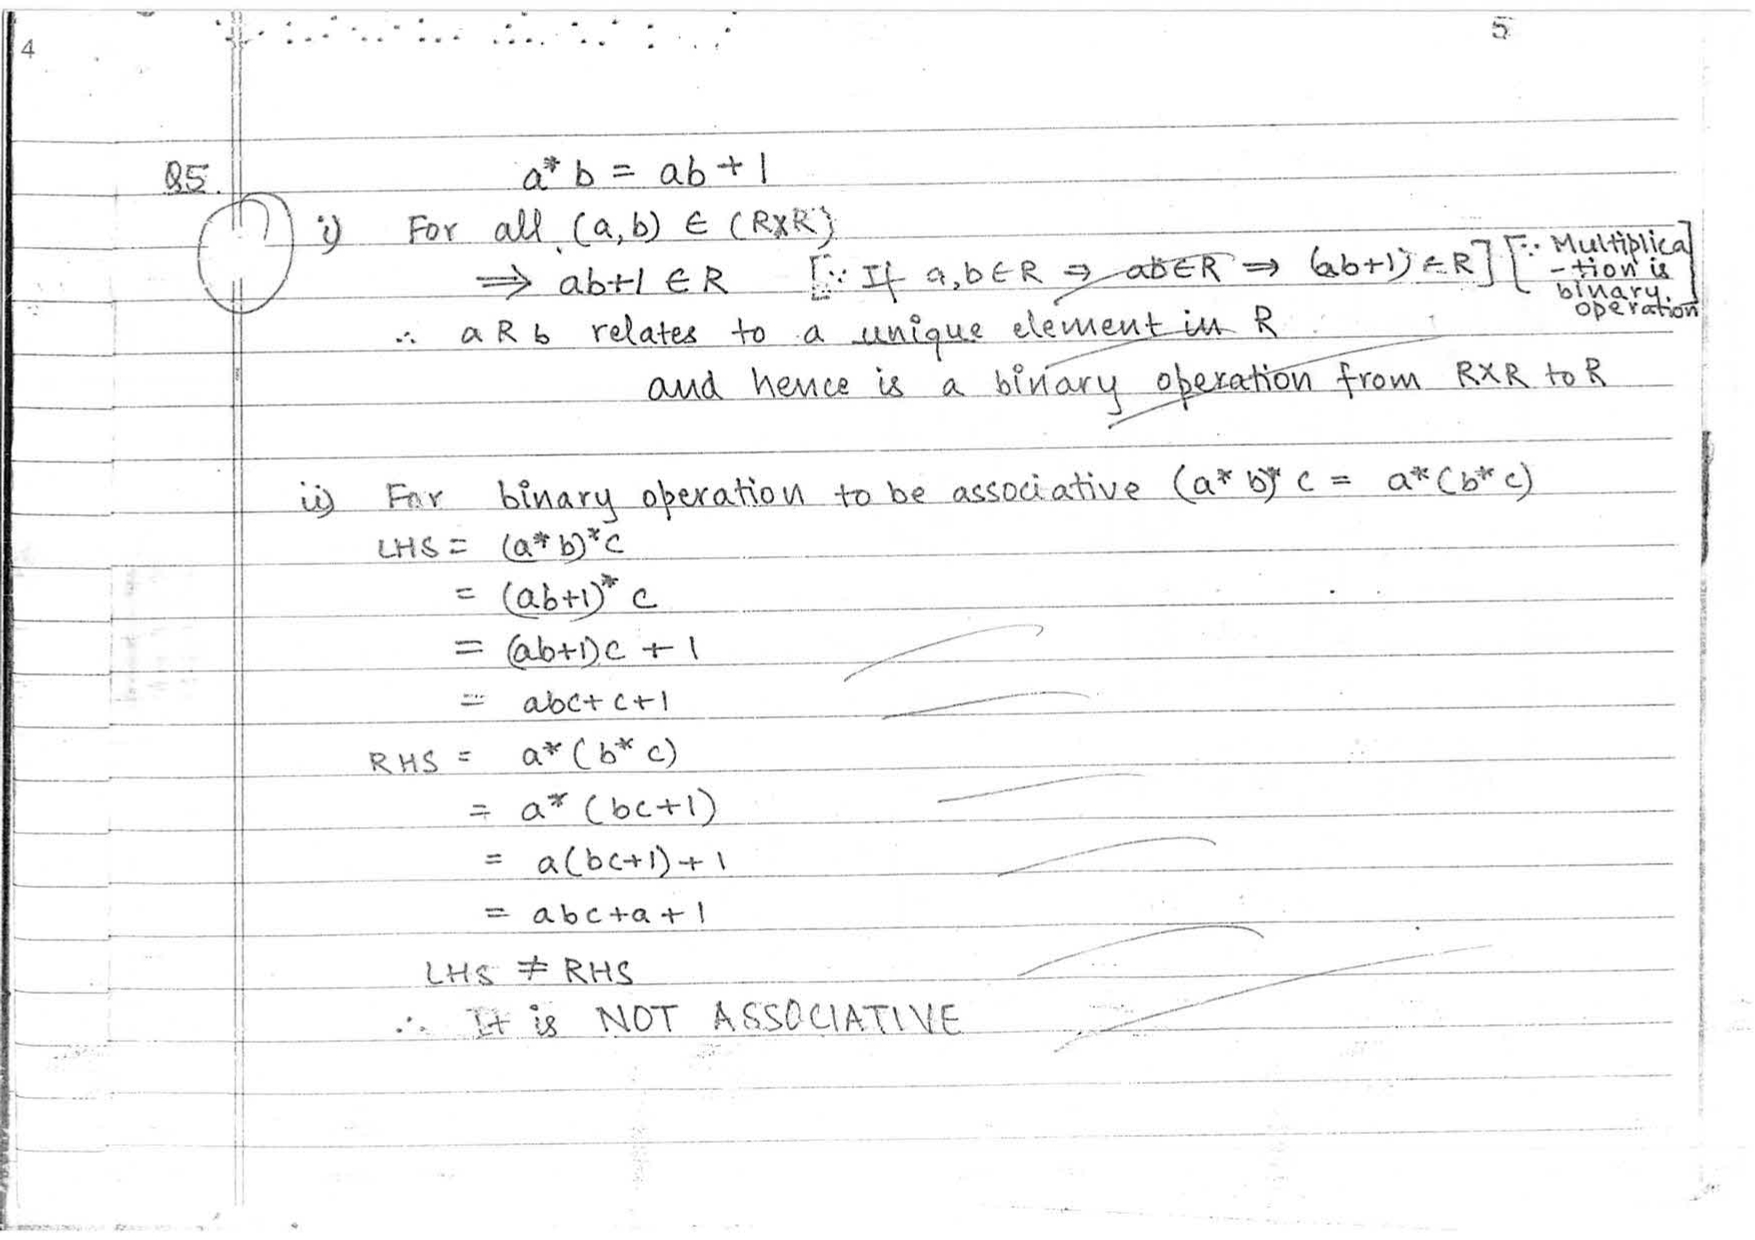 4
5
Q5.
a* b = ab + 1
i) For all (a, b) ∈ (R×R)
⇒ ab+1 ∈ R [∵ If a, b ∈ R ⇒ ab ∈ R ⇒ (ab+1) ∈ R] [∵ Multiplica
-tion is
binary
operation]
∴ a R b relates to a unique element in R
and hence is a binary operation from R×R to R
ii) For binary operation to be associative (a* b)* c = a* (b* c)
LHS = (a* b)* c
= (ab+1)* c
= (ab+1)c + 1
= abc + c + 1
RHS = a* (b* c)
= a* (bc+1)
= a(bc+1) + 1
= abc + a + 1
LHS ≠ RHS
∴ It is NOT ASSOCIATIVE